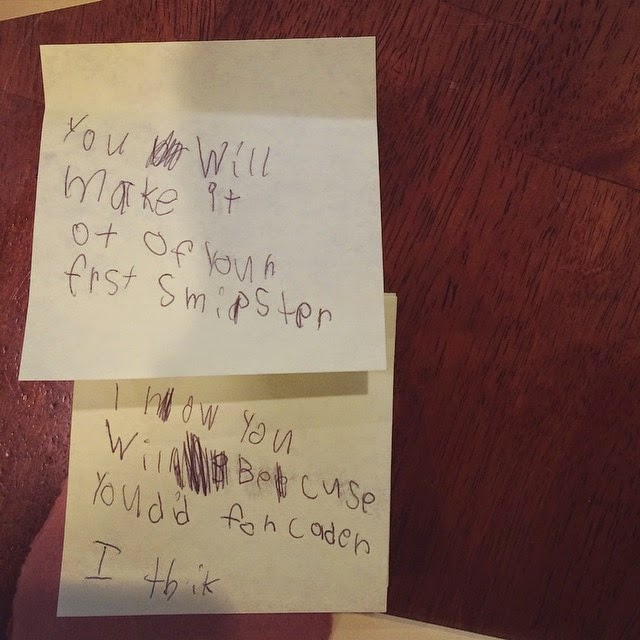 You Will
Make it
ot of Your
frst Smipster
I now you
Will Becuse
You did for caden
I thik